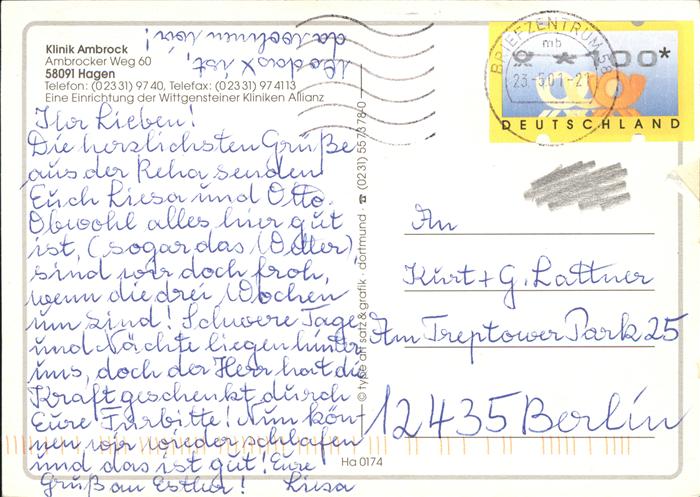 Klinik Ambrock
Ambrocker Weg 60
58091 Hagen
Telefon: (0 23 31) 97 40, Telefax: (0 23 31) 97 4113
Eine Einrichtung der Wittgensteiner Kliniken Allianz
Ihr Lieben!
Die herzlichsten Grüße
aus der Reha senden
Euch Liesa und Otto.
Obwohl alles hier gut
ist, (sogar das Wetter),
sind wir doch froh,
wenn die drei Wochen
um sind! Schwere Tage
und Nächte liegen hinter
uns, doch der Herr hat die
Kraft geschenkt durch
Eure Fürbitte! Nun kön-
nen wir wieder schlafen
und das ist gut! Eure
Gruß an Esther! Liesa
Wo das X ist,
da wohnen wir!
© type art satz & grafik · dortmund · ☎ (0231) 55 73 78-0
Ha 0174
BRIEFZENTRUM 58
mb
23.-5.01-21
* 1,00*
DEUTSCHLAND
An
Kurt + G. Lattner
Am Treptower Park 25
12435 Berlin